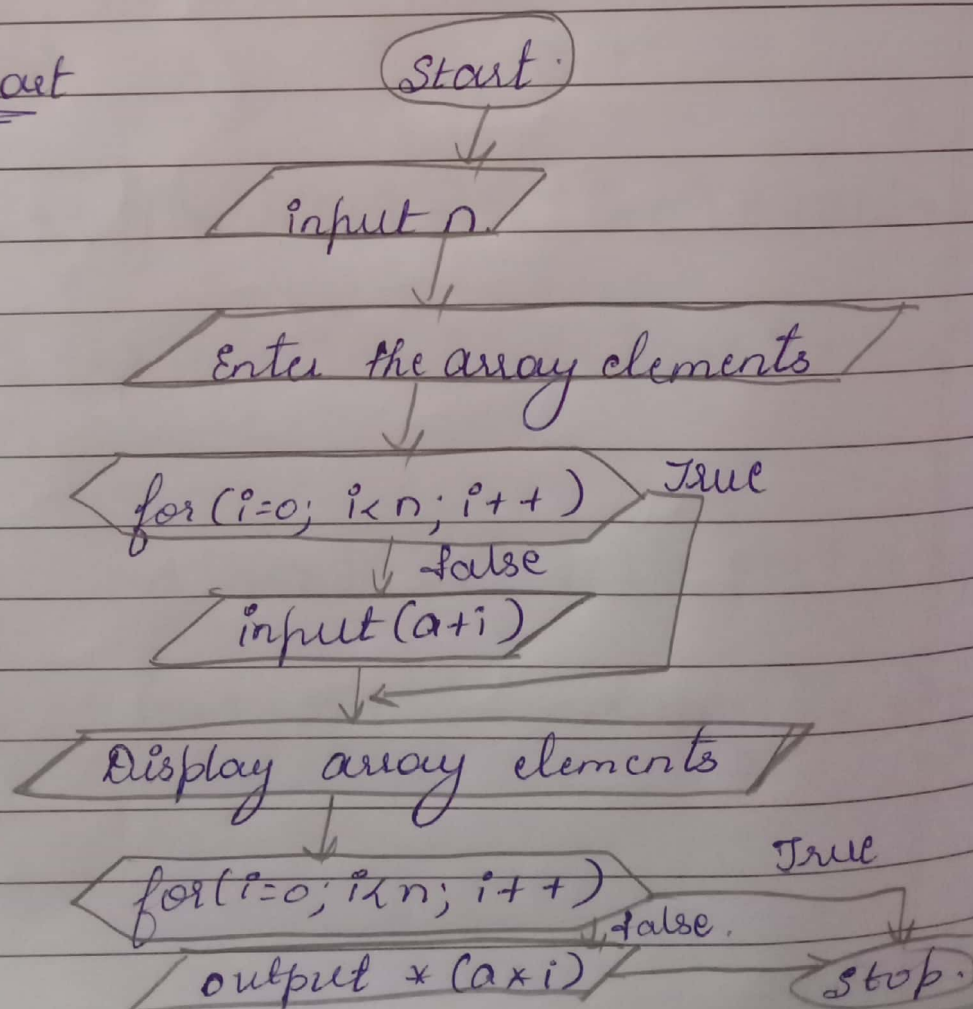 Start
input n
Enter the array elements
for (i=0; i<n; i++)
True
false
input (a+i)
Display array elements
True
for (i=0; i<n; i++)
false.
output *(a*i)
Stop.